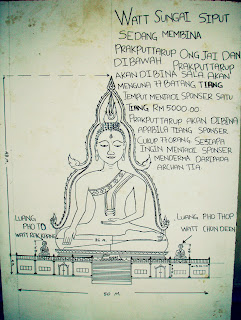 WATT SUNGAI SIPUT
SEDANG MEMBINA
PRAKPUTTARUP ONG JAI DAN
DIBAWAH PRAKPUTTARUP
AKAN DIBINA SALA AKAN
MENGUNA 77 BATANG TIANG
JEMPUT MENJADI SPONSER SATU
TIANG RM 5000.00
PRAKPUTTARUP AKAN DIBINA
APABILA TIANG SPONSER
CUKUP 77 ORANG SESIAPA
INGIN MENJADI SPONSER
MENDERMA DARIPADA
ARCHAN TIA.
LUANG
PHO TO
WATT
LUANG PHO THOP
WATT CHON DEEN
50 M.